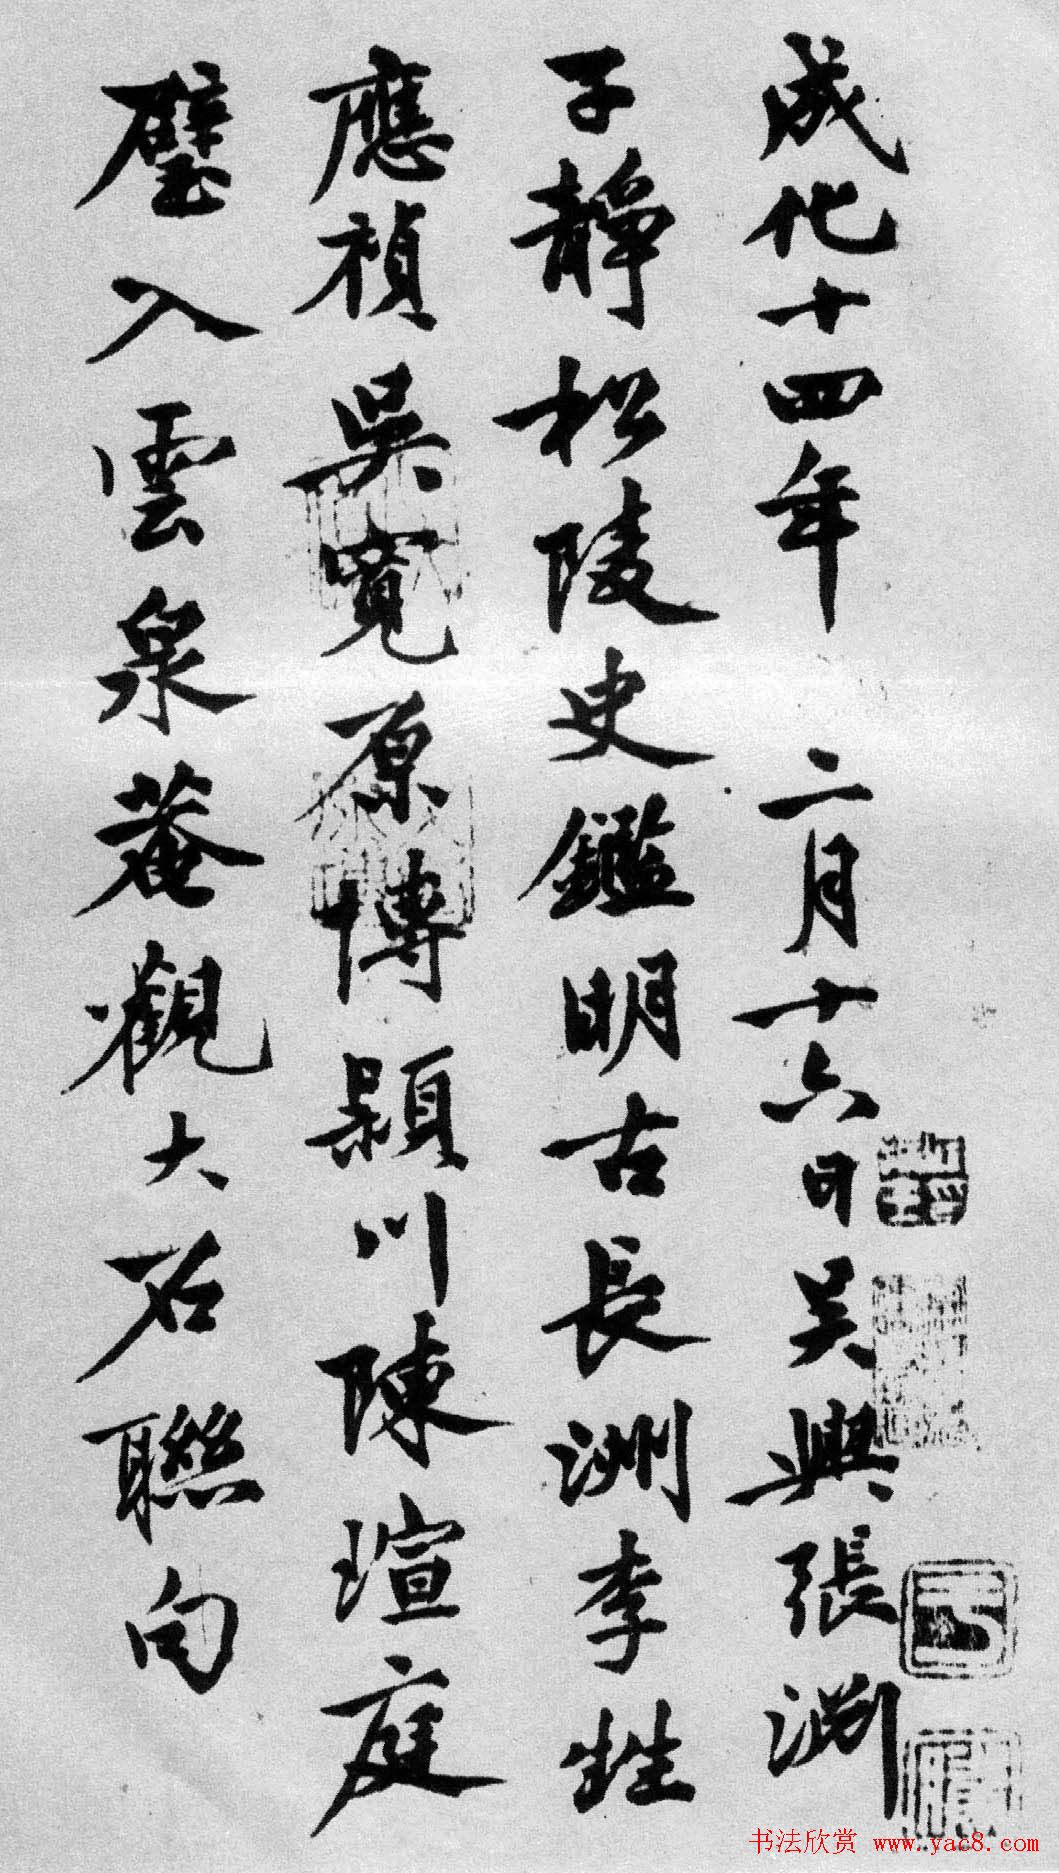 成化十四年二月十六日吴興張淵
子静松陵史鑑明古長洲李甡
應禎吴寬原博潁川陳瑄庭
璧入雲泉菴觀大石聯句
书法欣赏 www.yac8.com